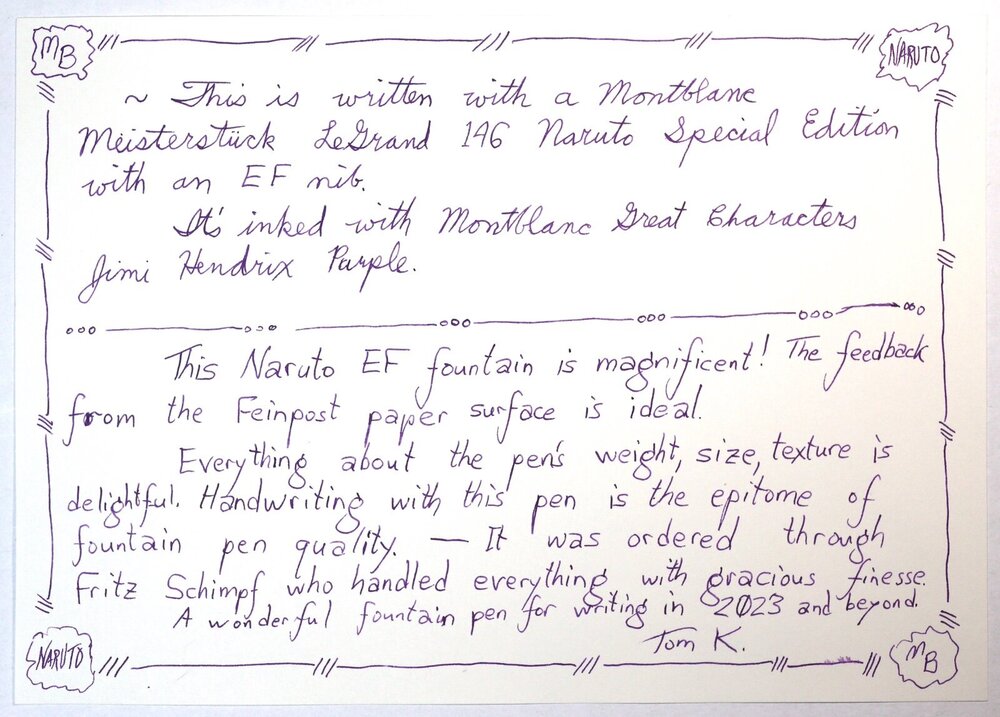 MB
NARUTO
~ This is written with a Montblanc
Meisterstück LeGrand 146 Naruto Special Edition
with an EF nib.
It's inked with Montblanc Great Characters
Jimi Hendrix Purple.
This Naruto EF fountain is magnificent! The feedback
from the Feinpost paper surface is ideal.
Everything about the pen's weight, size, texture is
delightful. Handwriting with this pen is the epitome of
fountain pen quality. — It was ordered through
Fritz Schimpf who handled everything with gracious finesse.
A wonderful fountain pen for writing in 2023 and beyond.
Tom K.
NARUTO
MB